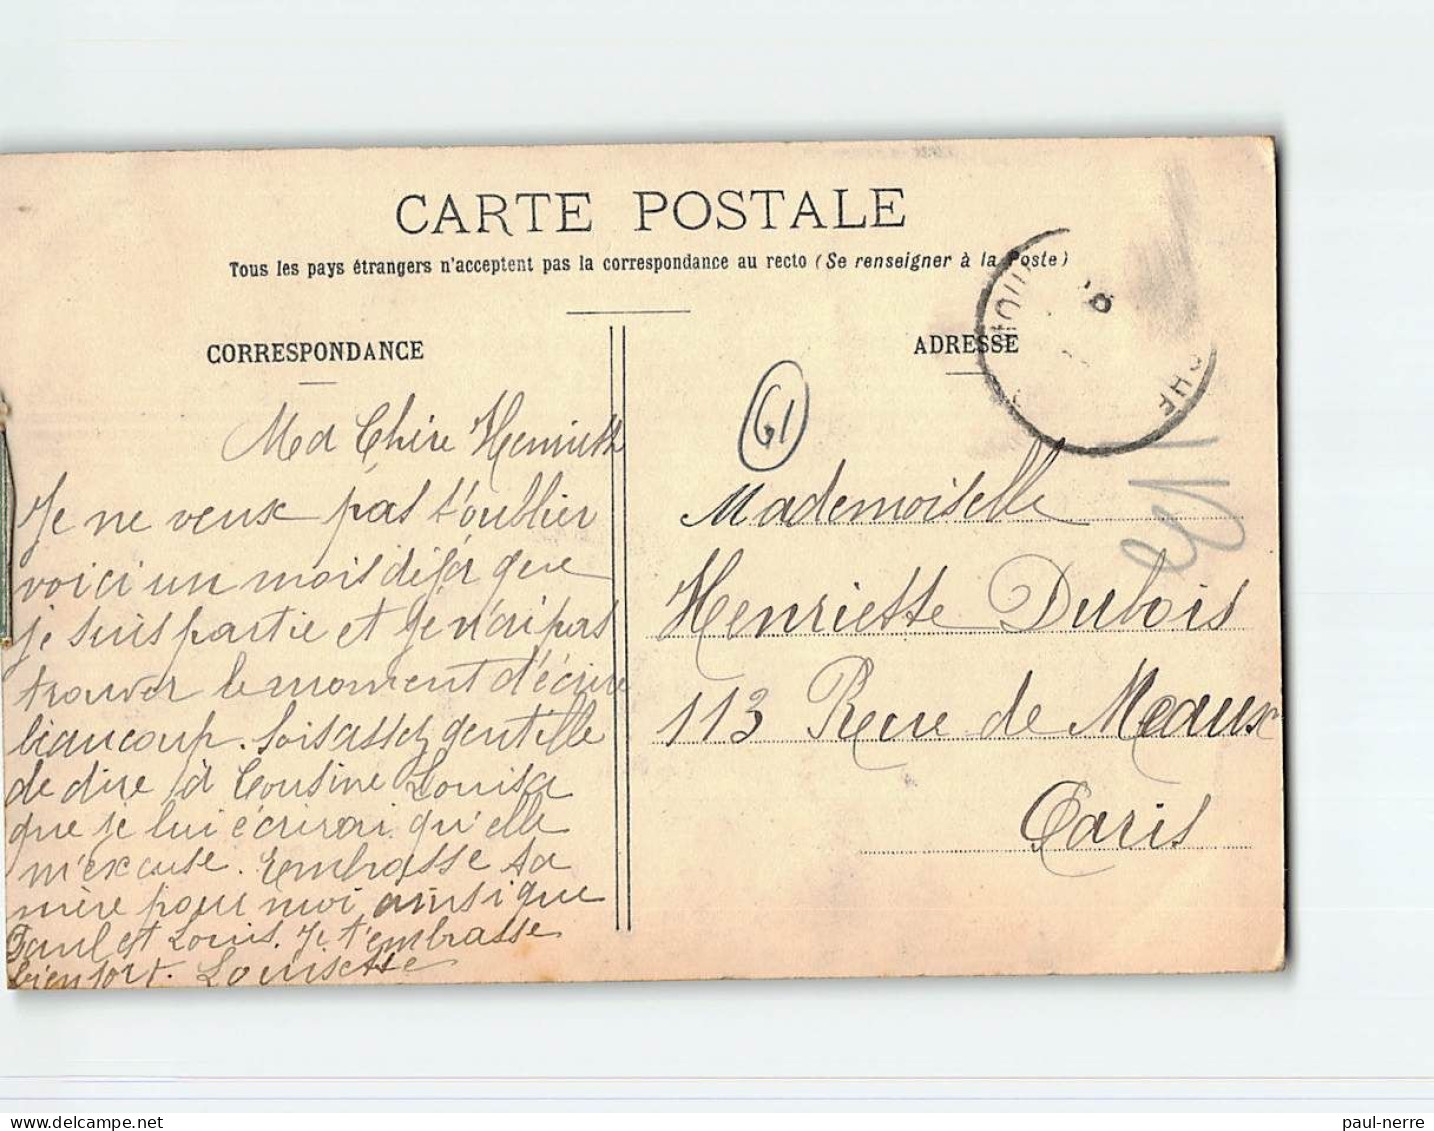 CARTE POSTALE
Tous les pays étrangers n'acceptent pas la correspondance au recto (Se renseigner à la Poste)
CORRESPONDANCE
Ma Chère Henriette
Je ne veux pas t'oublier
voici un mois déjà que
je suis partie et je n'ai pas
trouver le moment d'écrire
beaucoup. Sois assez gentille
de dire à Cousine Louisa
que je lui écrirai qu'elle
m'excuse. Embrasse ta
mère pour moi ainsi que
Paul et Louis. Je t'embrasse
bien fort. Louisette
ADRESSE
61
CHE
Mademoiselle
Henriette Dubois
113 Rue de Meaux
Paris
paul-nerre